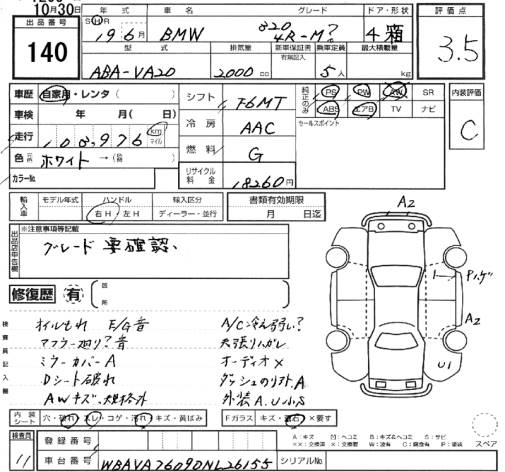 10月30日
出品番号 年式 車名 グレード ドア・形状 評価点
140
19年6月 BMW 320 4R-M? 4 箱 3.5
型式 排気量 新車保証書 有無記入 乗車定員 最大積載量
ABA-VA20 2000cc 5人 kg
車歴 自家用・レンタ( )
車検 年 月( 日)
走行 103,976 km マイル
色 ホワイト →( )
カラーNo.
シフト F6MT
冷房 AAC
燃料 G
リサイクル料金 18260円
純正のみ PS PW AW SR
ABS エアB TV ナビ
セールスポイント
内装評価
C
輸入車 モデル年式 ハンドル 輸入区分
右H・左H ディーラー・並行
書類有効期限
月 日迄
出品店申告欄 ※注意事項等記載
グレード要確認、
修復歴 有 箇所
検査員記入欄
オイルもれ E/G音
マフラー廻り?音
ミラーカバーA
Dシート破れ
AWキズ、
A/C
天張りハガレ
オーディオ×
ダッシュのリフトA
外装A.U小S
A2
A2
U1
内装シート 穴・破れ・スレ・コゲ・汚れ・キズ・黄ばみ
Fガラス キズ・直石・×要す
検査員 11
登録番号
車台番号 WBAVA76090NL26155 シリアルNo.
A:キズ U:ヘコミ B:キズ&ヘコミ S:サビ
スペア